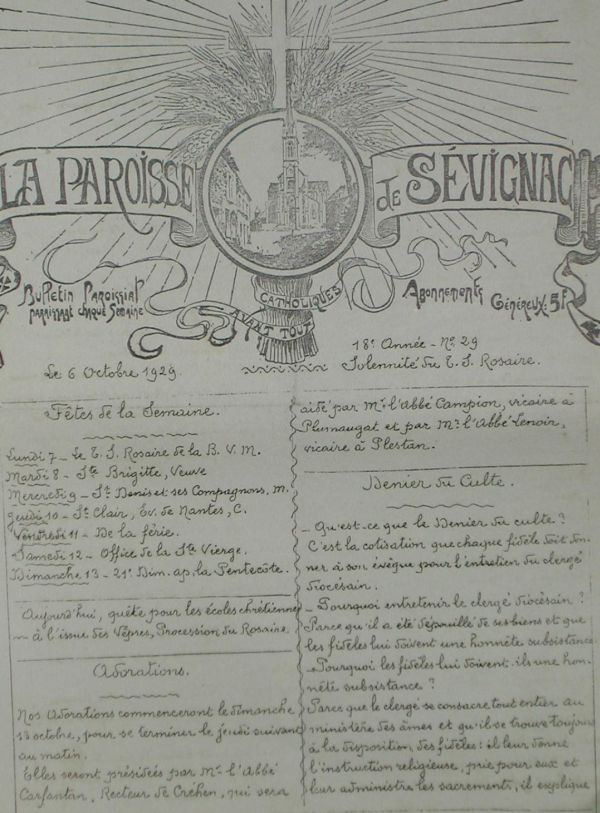 LA PAROISSE de SÉVIGNAC
Bulletin Paroissial
paraissant chaque Semaine
CATHOLIQUES
AVANT TOUT
Abonnements
Généreux: 5f
Le 6 Octobre 1929.
18e Année - No 29
Solennité du T. S. Rosaire.
Fêtes de la Semaine.
Lundi 7 - Le T. S. Rosaire de la B. V. M.
Mardi 8 - Ste Brigitte, Veuve
Mercredi 9 - St Denis et ses Compagnons, M.
Jeudi 10 - St Clair, Ev. de Nantes, C.
Vendredi 11 - De la férie.
Samedi 12 - Office de la Ste Vierge.
Dimanche 13 - 21e Dim. ap. la Pentecôte.
Aujourd'hui, quête pour les écoles chrétiennes
- à l'issue des Vêpres, Procession du Rosaire
Adorations.
Nos Adorations commenceront le dimanche
13 octobre, pour se terminer le jeudi suivant
au matin.
Elles seront présidées par Mr l'Abbé
Carfantan, Recteur de Créhen, qui sera
aidé par Mr l'Abbé Campion, vicaire à
Plumaugat et par Mr l'Abbé Lenoir,
vicaire à Plestan.
Denier du Culte.
- Qu'est-ce que le Denier du culte ?
C'est la cotisation que chaque fidèle doit don-
ner à son évêque pour l'entretien du clergé
diocésain.
- Pourquoi entretenir le clergé diocésain ?
Parce qu'il a été dépouillé de ses biens et que
les fidèles lui doivent une honnête subsistance
- Pourquoi les fidèles lui doivent-ils une hon-
nête subsistance ?
Parce que le clergé se consacre tout entier au
ministère des âmes et qu'il se trouve toujours
à la disposition des fidèles : il leur donne
l'instruction religieuse, prie pour eux et
leur administre les sacrements, il explique